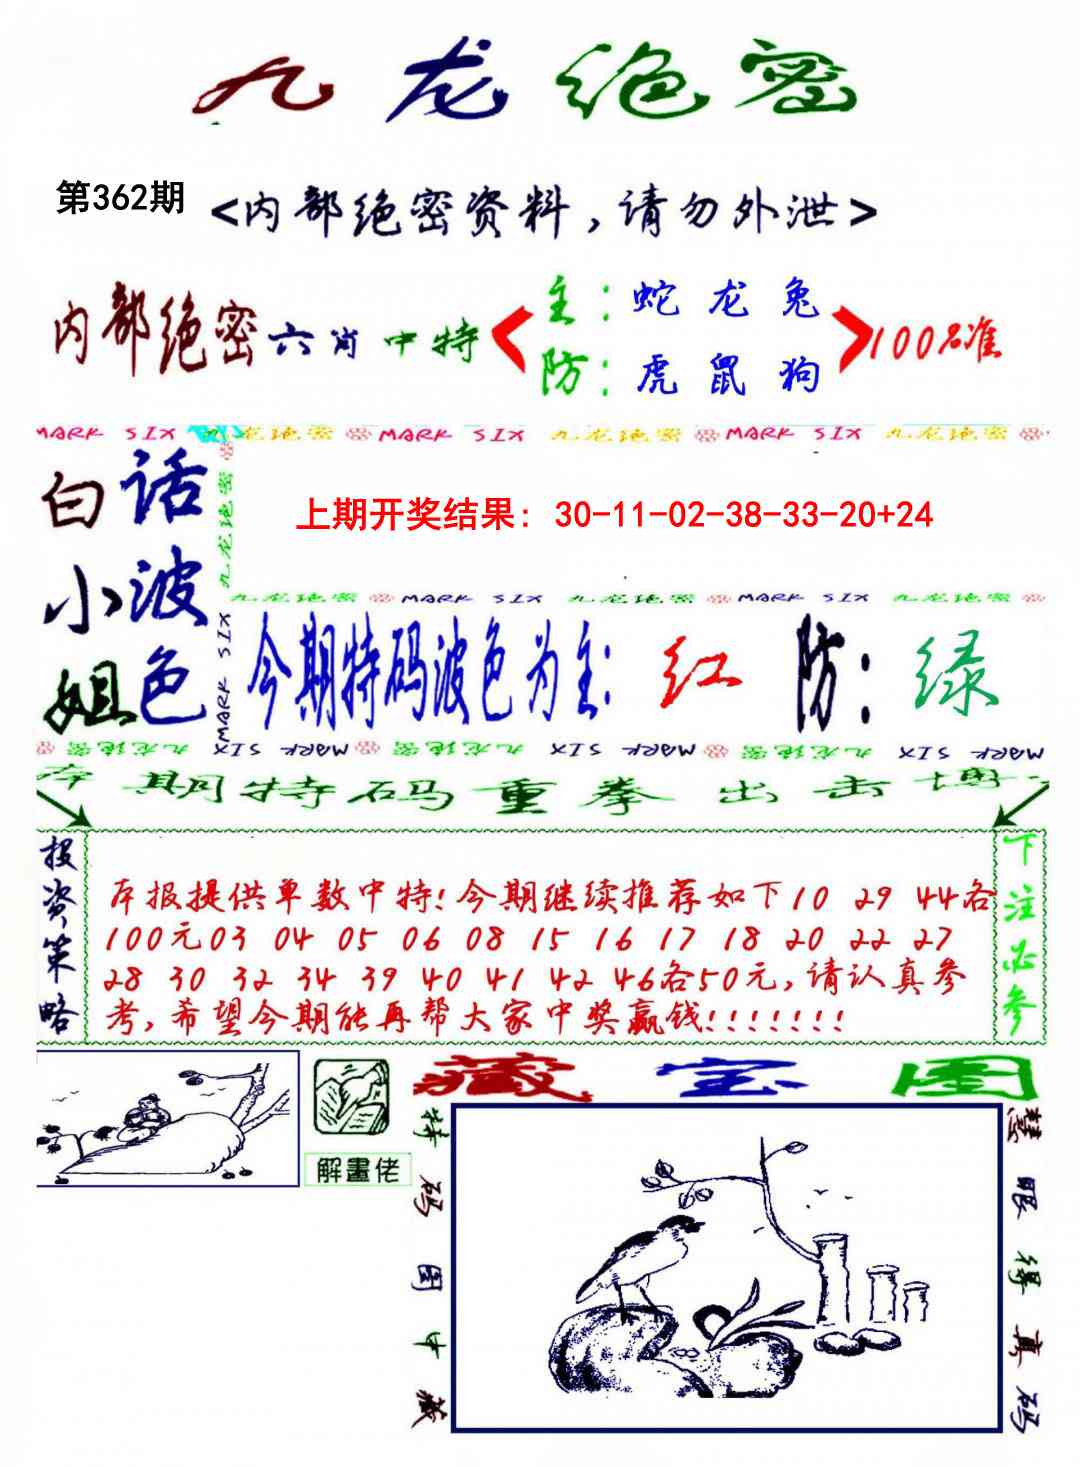 九龙绝密
第362期
<内部绝密资料,请勿外泄>
内部绝密六肖中特
主:蛇 龙 兔
防:虎 鼠 狗
100%准
MARK SIX 九龙绝密 MARK SIX 九龙绝密 MARK SIX 九龙绝密
九龙绝密
MARK SIX
白话
小波
姐色
上期开奖结果: 30-11-02-38-33-20+24
九龙绝密 MARK SIX 九龙绝密 MARK SIX 九龙绝密
今期特码波色为主: 红 防: 绿
九龙绝密 MARK SIX 九龙绝密 MARK SIX 九龙绝密 MARK SIX
本期特码重拳出击博
投资策略
本报提供单数中特!今期继续推荐如下10 29 44各
100元03 04 05 06 08 15 16 17 18 20 22 27
28 30 32 34 39 40 41 42 46各50元,请认真参
考,希望今期能再帮大家中奖赢钱!!!!!!!
下注必参
解畫佬
藏宝图
特码图中藏
慧眼得真码